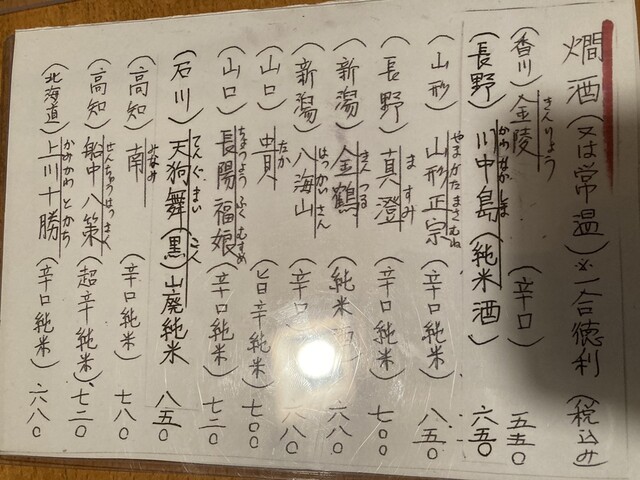 燗酒(又は常温)※一合徳利(税込み)
(香川)金陵(辛口)五五〇
きんりょう
(長野)川中島(純米酒)六五〇
かわなかじま
(山形)山形正宗(辛口純米)八五〇
やまがたまさむね
(長野)真澄(辛口純米)七〇〇
ますみ
(新潟)金鶴(純米酒)六八〇
きんつる
(新潟)八海山(辛口)六八〇
はっかいさん
(山口)貴(旨辛純米)七〇〇
たか
(山口)長陽福娘(辛口純米)七二〇
ちょうようふくむすめ
(石川)天狗舞(黒)山廃純米 八五〇
てんぐまい
(高知)南(辛口純米)七八〇
みなみ
(高知)船中八策(超辛純米)七二〇
せんちゅうはっさく
(北海道)上川十勝(辛口純米)六八〇
かみかわとかち